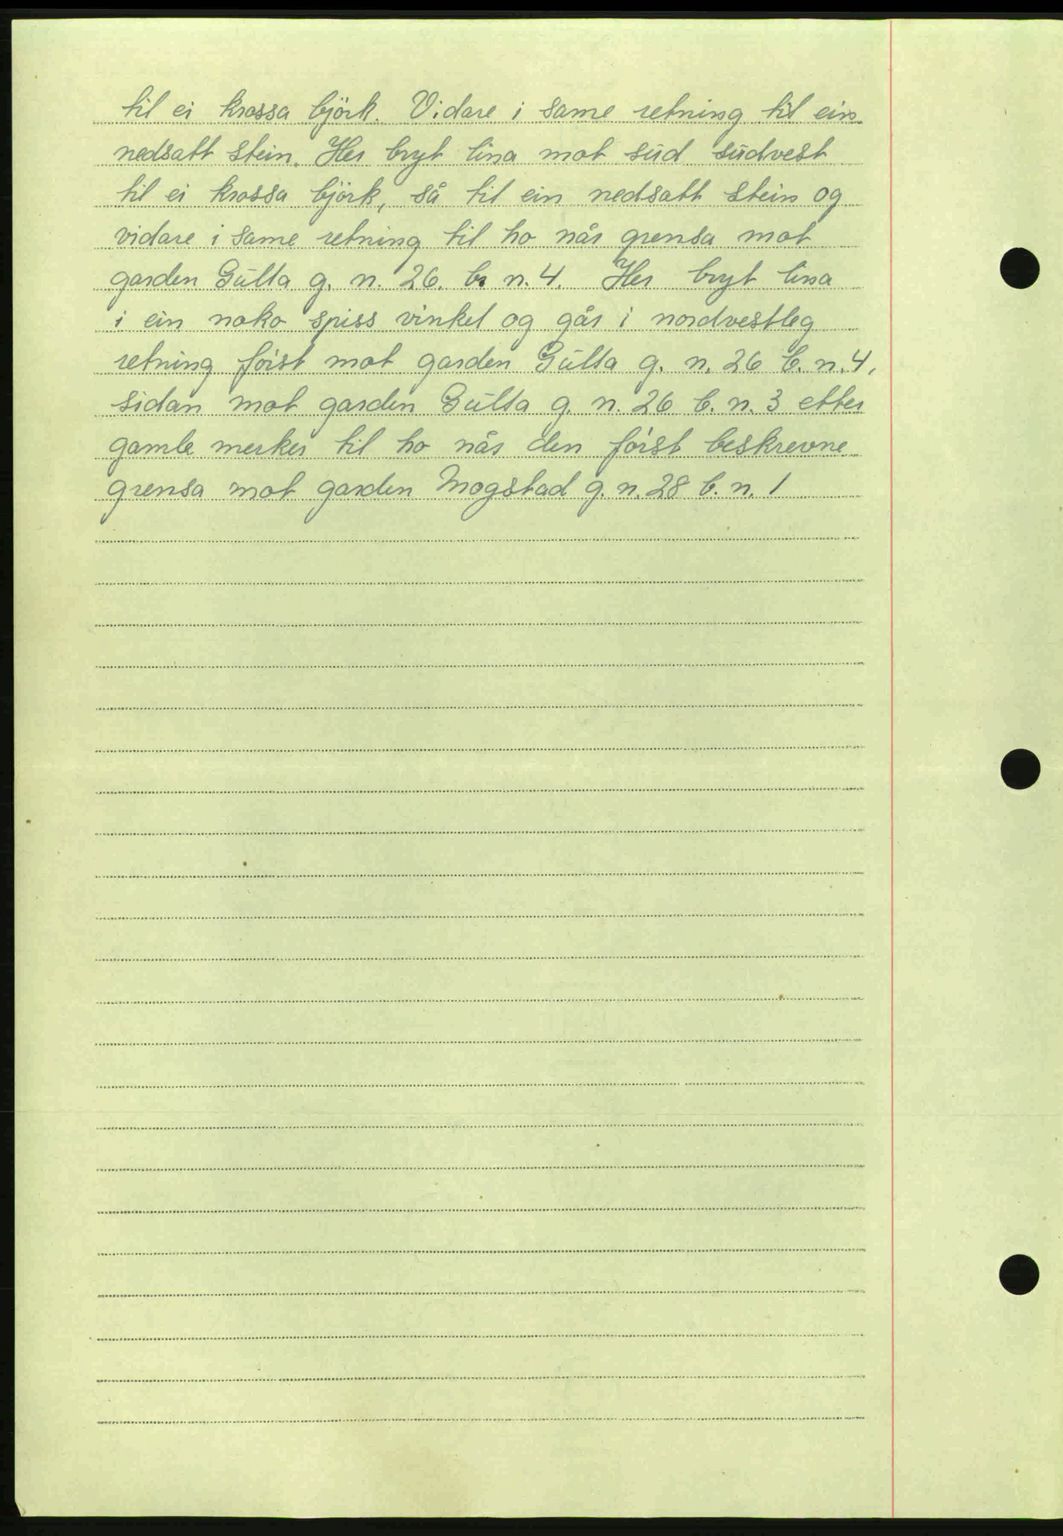 til ei krossa björk. Vidare i same retning til ein
nedsatt stein. Her bryt lina mot süd südvest
til ei krossa björk, så til ein nedsatt stein og
vidare i same retning til ho når grensa mot
garden Gülla g. n. 26. b. n. 4. Her bryt lina
i ein noko spiss vinkel og går i nordvestleg
retning först mot garden Gülla g. n. 26 b. n. 4,
sidan mot garden Gülla g. n. 26 b. n. 3 etter
gamle merker til ho når den först beskrevne
grensa mot garden Mogstad g. n. 28 b. n. 1